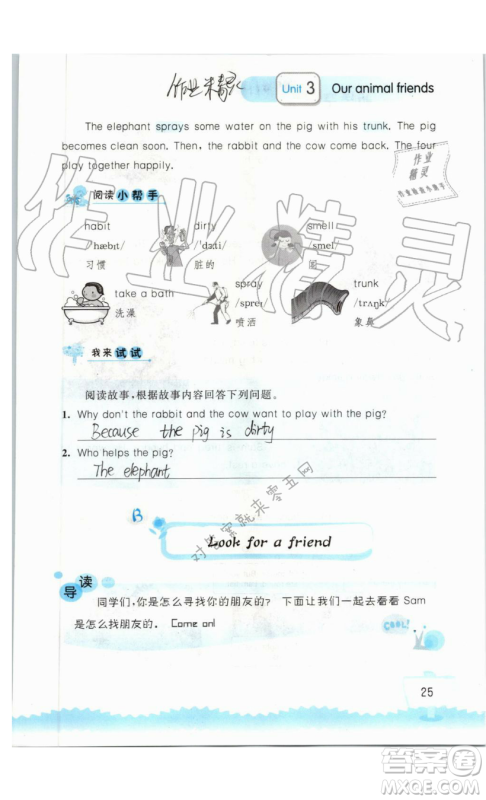 作业精灵
Unit 3 Our animal friends
The elephant sprays some water on the pig with his trunk. The pig
becomes clean soon. Then, the rabbit and the cow come back. The four
play together happily.
作业
精灵
阅读小帮手
habit dirty smell
/hæbɪt/ /'dɜːti/ /smel/
习惯 脏的 闻
take a bath spray trunk
/spreɪ/ /trʌŋk/
洗澡 喷洒 象鼻
作业精灵
我来试试
阅读故事，根据故事内容回答下列问题。
1. Why don't the rabbit and the cow want to play with the pig?
Because the pig is dirty
2. Who helps the pig?
The elephant
对答案就来零五网
B
Look for a friend
导读
同学们，你是怎么寻找你的朋友的？ 下面让我们一起去看看 Sam
是怎么找朋友的。 Come on!
COOL!
25
答案圈
MXQE.COM